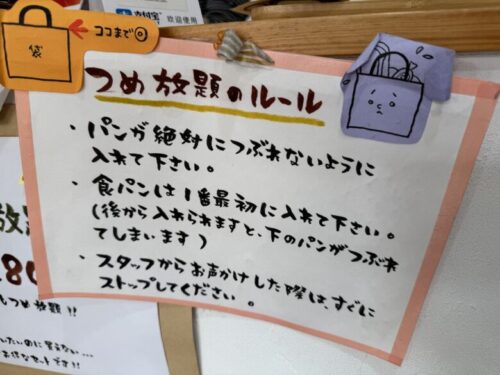 支付宝
欢迎使用
ココまで◎
袋
つめ放題のルール
・パンが絶対につぶれないように
入れて下さい。
・食パンは1番最初に入れて下さい。
(後から入れられますと、下のパンがつぶれ
てしまいます)
・スタッフからお声かけした際は、すぐに
ストップしてください。
放題
つめ放題!!
いたいのに買えない...
お得なセットです!!